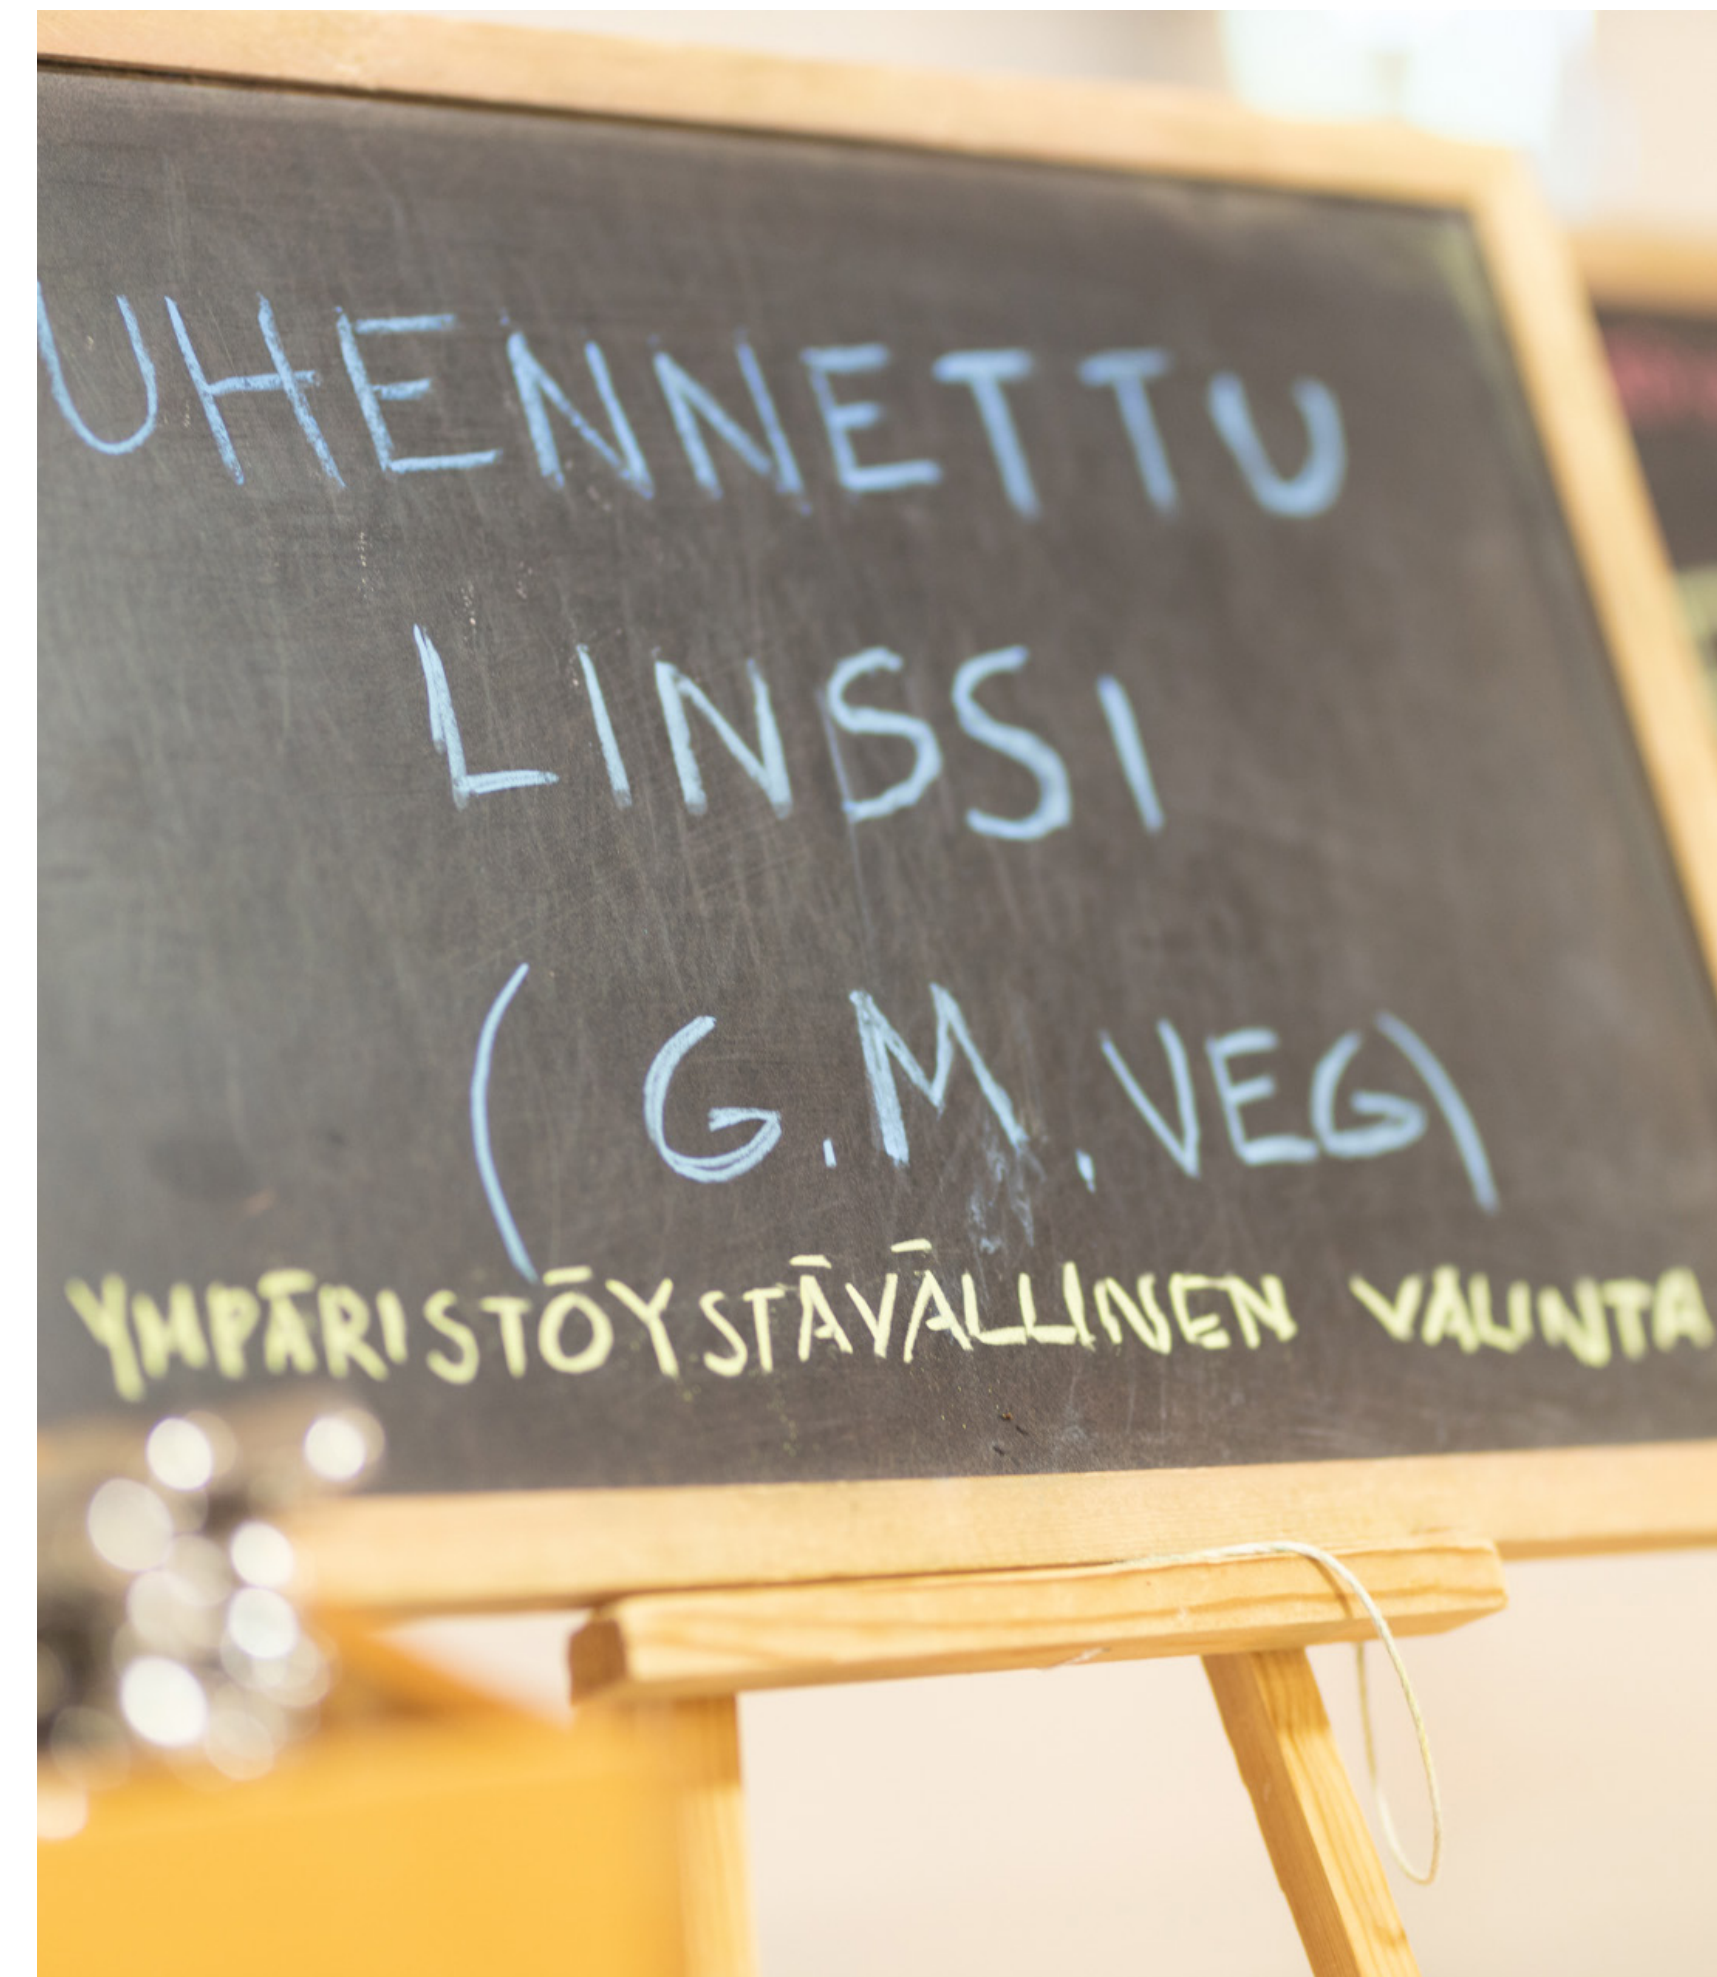 UHENNETTU
LINSSI
(G.M.VEG)
YMPÄRISTÖYSTÄVÄLLINEN VALINTA